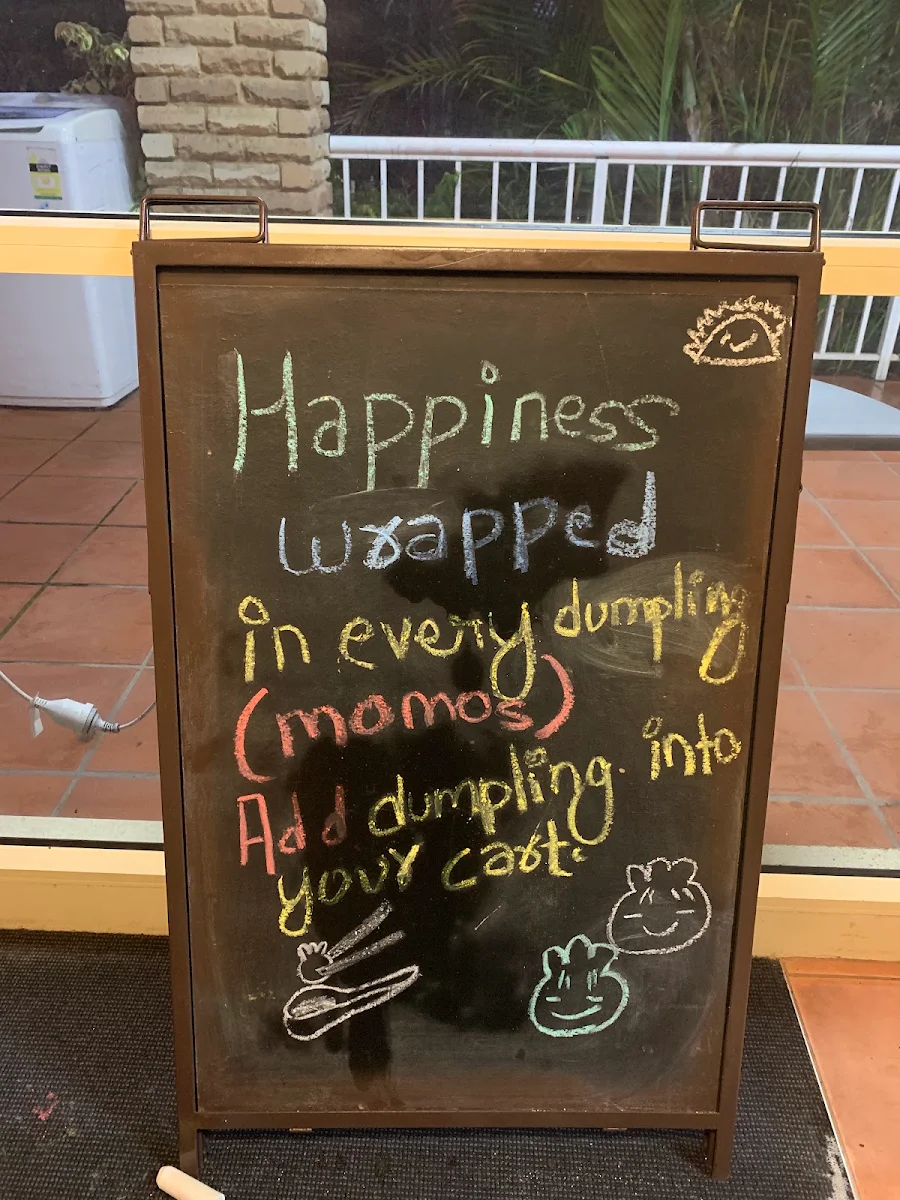 Happiness
wrapped
in every dumpling
(momos)
Add dumpling. into
your cart.